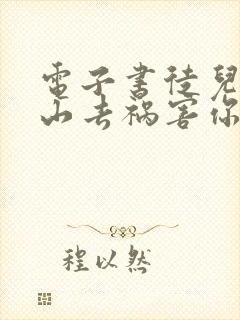 電子書徒兒
山去禍害你
程以然